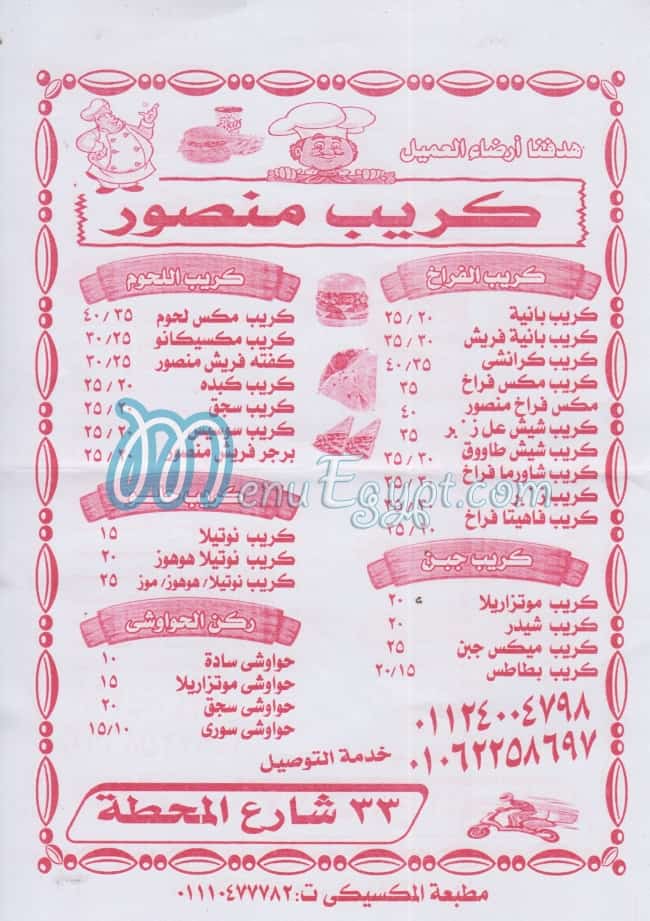 هدفنا أرضاء العميل
كريب منصور
كريب الفراخ
كريب بانية ٢٥/٢٠
كريب بانية فريش ٣٥/٣٠
كريب كرانشى ٤٠/٣٥
كريب مكس فراخ ٣٥
مكس فراخ منصور ٤٠
كريب شيش عل ٣٥
كريب شيش طاووق ٣٥/٣٠
كريب شاورما فراخ
كريب
كريب فاهيتا فراخ
كريب جبن
كريب موتزاريلا ٢٠
كريب شيدر ٢٠
كريب ميكس جبن ٢٥
كريب بطاطس ٢٠/١٥
كريب اللحوم
كريب مكس لحوم ٤٠/٣٥
كريب مكسيكانو ٣٠/٢٥
كفته فريش منصور ٣٠/٢٥
كريب كبده ٢٥/٢٠
كريب سجق
كريب سوسيس
برجر فريش منصور
كريب
كريب نوتيلا ١٥
كريب نوتيلا هوهوز ٢٠
كريب نوتيلا/هوهوز/موز ٢٥
ركن الحواوشى
حواوشى سادة ١٠
حواوشى موتزاريلا ١٥
حواوشى سجق ٢٠
حواوشى سورى ١٥/١٠
٠١١٢٤٠٠٤٧٩٨
٠١٠٦٢٢٥٨٦٩٧
خدمة التوصيل
٣٣ شارع المحطة
مطبعة المكسيكى ت: ٠١١١٠٤٧٧٧٨٢
MenuEgypt.com